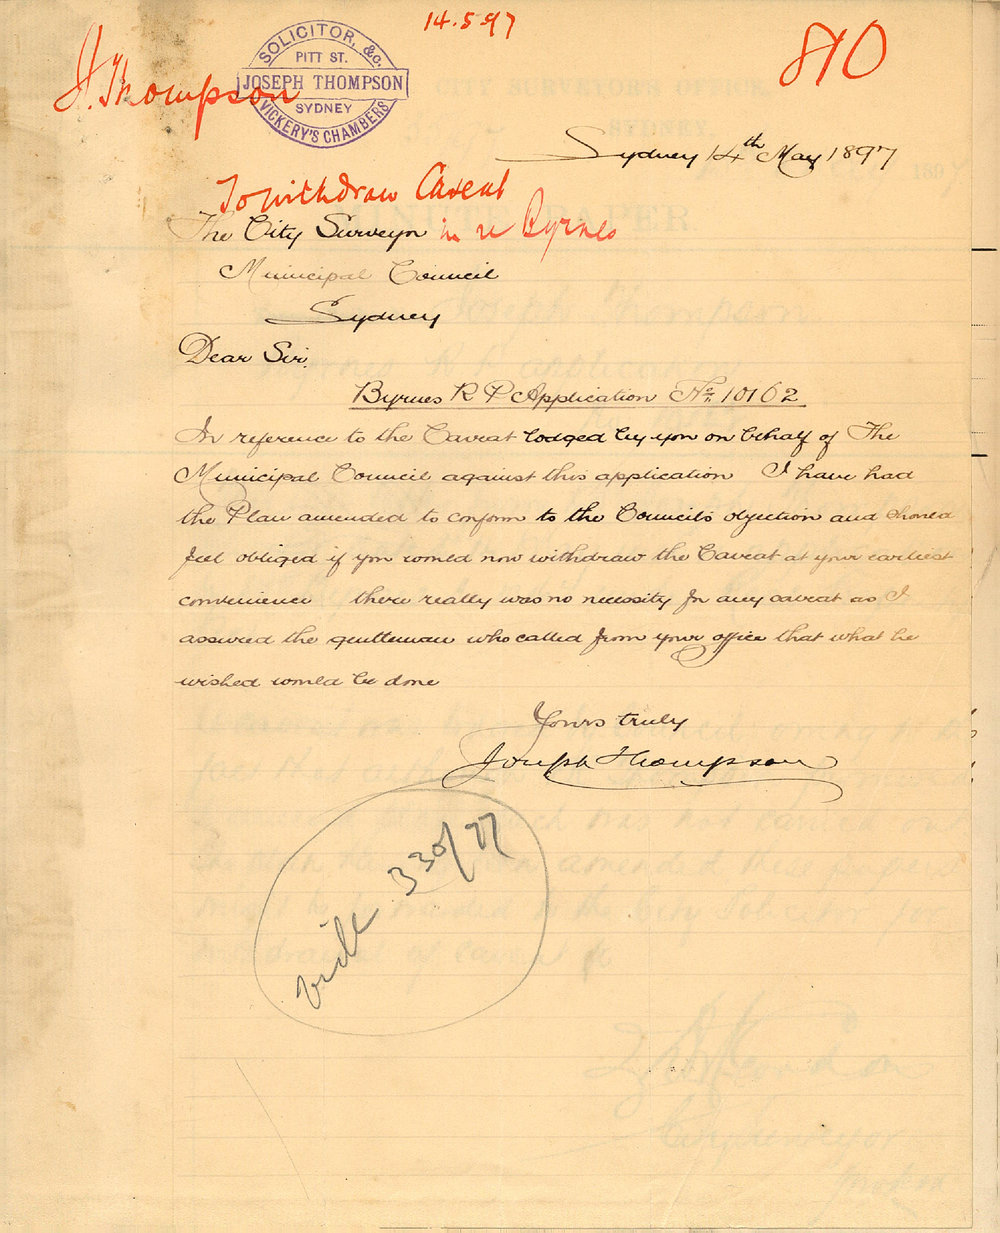 14.5.97
810
J. Thompson
SOLICITOR, &c.
PITT ST.
JOSEPH THOMPSON
SYDNEY
VICKERY'S CHAMBERS
Sydney 14th May 1897
To withdraw Caveat
in re Byrnes
The City Surveyor
Municipal Council
Sydney
Dear Sir,
Byrnes R P Application No. 10162
In reference to the Caveat lodged by you on behalf of The
Municipal Council against this application I have had
the Plan amended to conform to the Council's objection and should
feel obliged if you would now withdraw the Caveat at your earliest
convenience there really was no necessity for any caveat as I
assured the gentleman who called from your office that what he
wished would be done
Yours truly
Joseph Thompson
vide 330/77
CITY SURVEYOR'S OFFICE,
SYDNEY,
189
MINUTE PAPER.
Joseph Thompson
Byrnes R P application